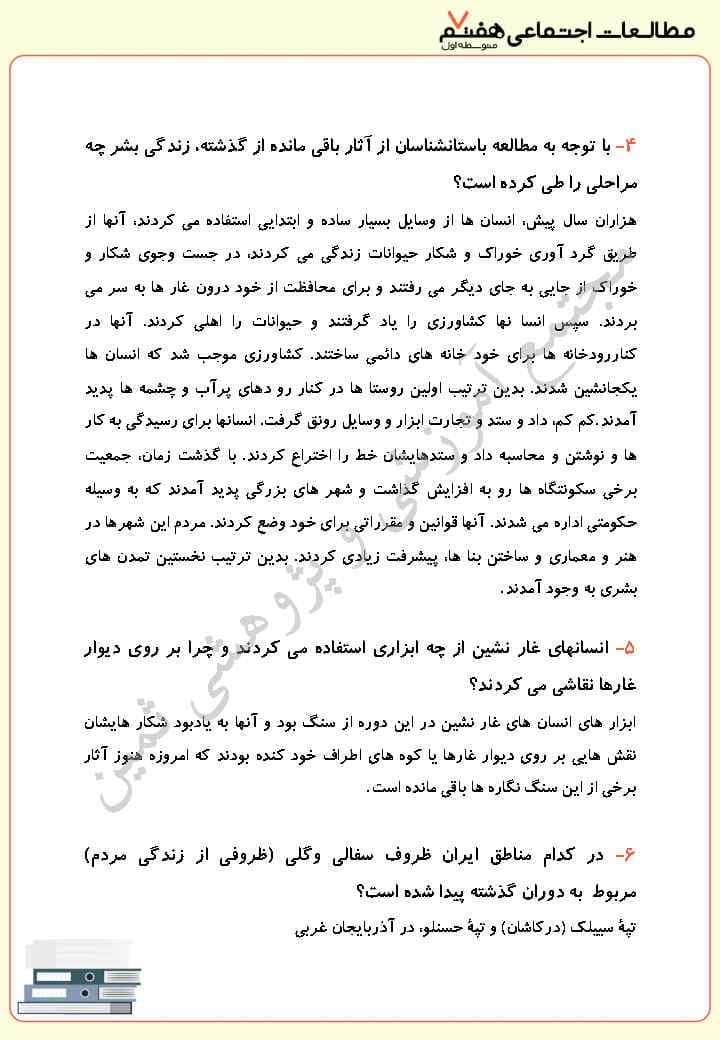 مطالعات اجتماعی هفتم ۷
متوسطه اول
۴- با توجه به مطالعه باستانشناسان از آثار باقی مانده از گذشته، زندگی بشر چه
مراحلی را طی کرده است؟
هزاران سال پیش، انسان ها از وسایل بسیار ساده و ابتدایی استفاده می کردند، آنها از
طریق گرد آوری خوراک و شکار حیوانات زندگی می کردند، در جست وجوی شکار و
خوراک از جایی به جای دیگر می رفتند و برای محافظت از خود درون غار ها به سر می
بردند. سپس انسا نها کشاورزی را یاد گرفتند و حیوانات را اهلی کردند. آنها در
کناررودخانه ها برای خود خانه های دائمی ساختند. کشاورزی موجب شد که انسان ها
یکجانشین شدند. بدین ترتیب اولین روستا ها در کنار رو دهای پرآب و چشمه ها پدید
آمدند.کم کم، داد و ستد و تجارت ابزار و وسایل رونق گرفت. انسانها برای رسیدگی به کار
ها و نوشتن و محاسبه داد و ستدهایشان خط را اختراع کردند. با گذشت زمان، جمعیت
برخی سکونتگاه ها رو به افزایش گذاشت و شهر های بزرگی پدید آمدند که به وسیله
حکومتی اداره می شدند. آنها قوانین و مقرراتی برای خود وضع کردند. مردم این شهرها در
هنر و معماری و ساختن بنا ها، پیشرفت زیادی کردند. بدین ترتیب نخستین تمدن های
بشری به وجود آمدند.
۵- انسانهای غار نشین از چه ابزاری استفاده می کردند و چرا بر روی دیوار
غارها نقاشی می کردند؟
ابزار های انسان های غار نشین در این دوره از سنگ بود و آنها به یادبود شکار هایشان
نقش هایی بر روی دیوار غارها یا کوه های اطراف خود کنده بودند که امروزه هنوز آثار
برخی از این سنگ نگاره ها باقی مانده است.
۶- در کدام مناطق ایران ظروف سفالی وگلی (ظروفی از زندگی مردم)
مربوط به دوران گذشته پیدا شده است؟
تپۀ سییلک (درکاشان) و تپۀ حسنلو، در آذربایجان غربی
مجتمع آموزشی و پژوهشی ثمین